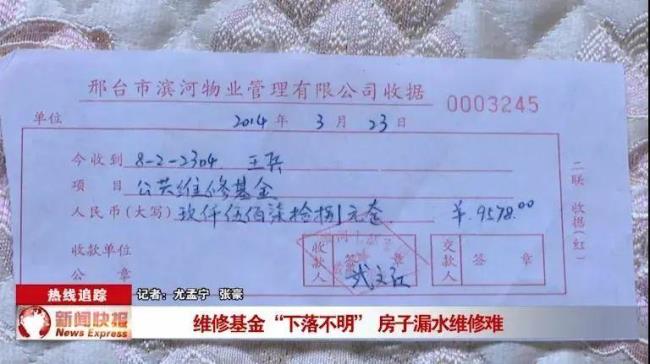 邢台市滨河物业管理有限公司收据 0003245
单位 2014 年 3 月 23 日
今收到 8-2-2304 王兵
项目 公共维修基金
人民币(大写) 玖仟伍佰柒拾捌元 ¥.9578.00
收款单位
公章
收款人 签章
交款人 签章
二联 收据(红)
热线追踪 记者:尤孟宁 张豪
新闻快报
News Express
维修基金“下落不明” 房子漏水维修难